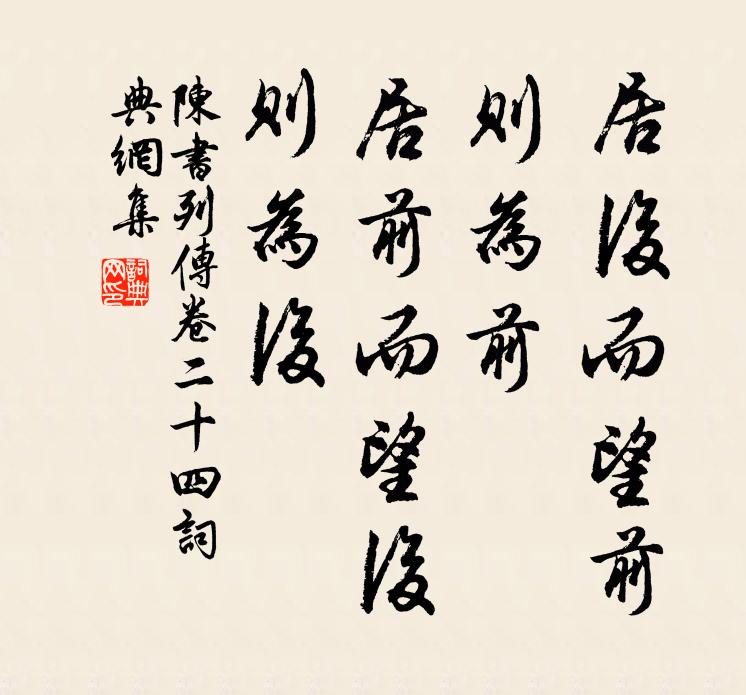 居後而望前
則為前
居前而望後
則為後
陳書列傳卷二十四詞
典網集
詞典
网印